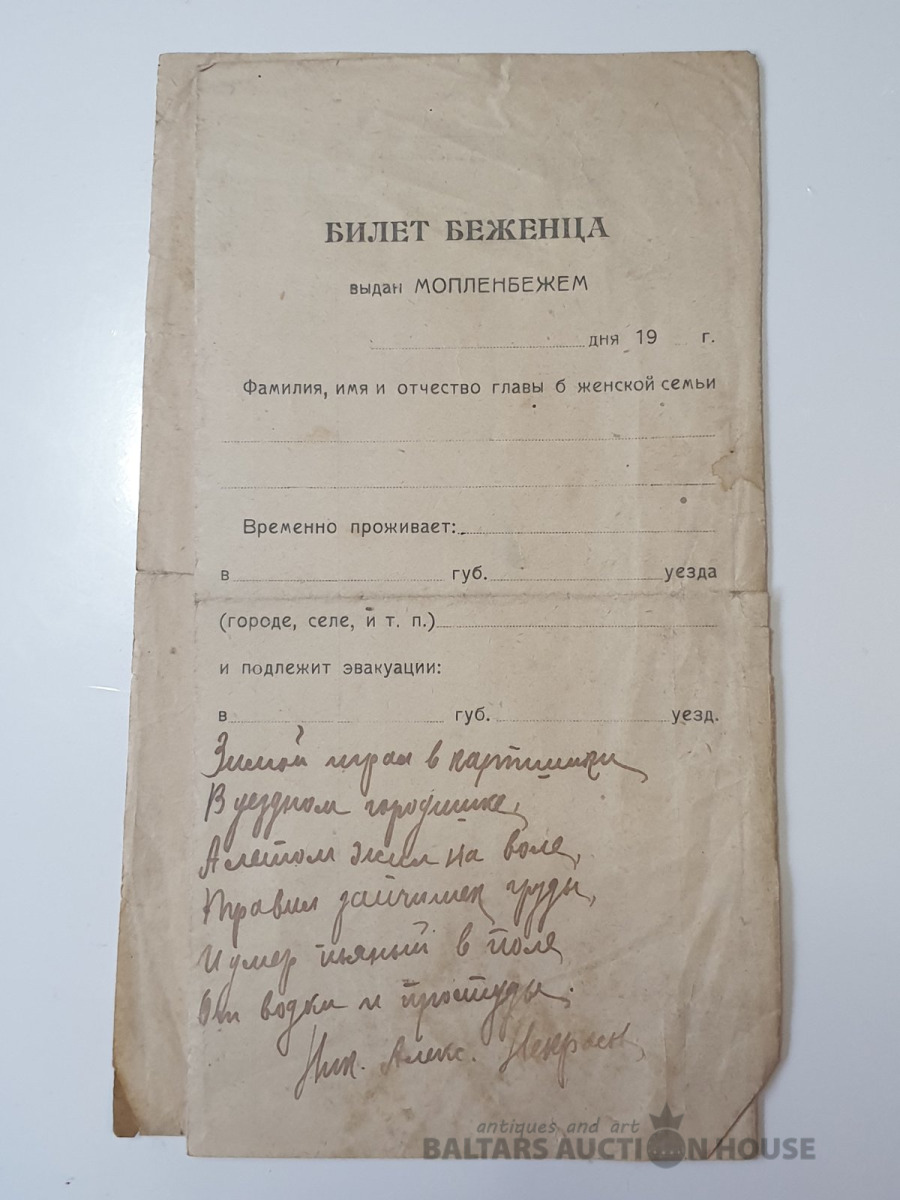 БИЛЕТ БЕЖЕНЦА
выдан МОПЛЕНБЕЖЕМ
дня 19 г.
Фамилия, имя и отчество главы б женской семьи
Временно проживает:
в губ. уезда
(городе, селе, и т. п.)
и подлежит эвакуации:
в губ. уезд.
Зимой играл в картишки
В уездном городишке,
А летом жил на воле,
Травил зайчишек груды,
И умер пьяный в поле
От водки и простуды.
Ник. Алекс.
antiques and art
BALTARS AUCTION HOUSE